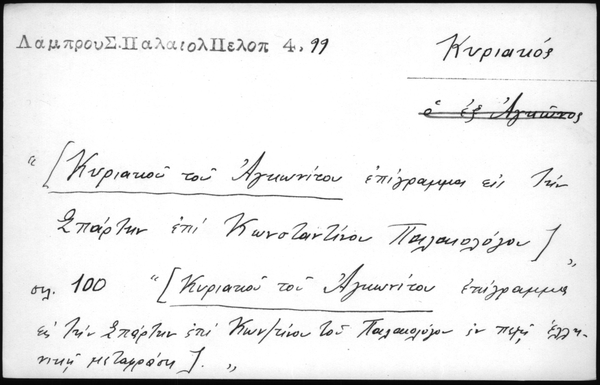 ΛαμπρουΣ.ΠαλαιολΠελοπ 4, 99
Κυριακός
ὁ ἐξ Ἀγκῶνος
"[Κυριακοῦ τοῦ Ἀγκωνίτου ἐπίγραμμα εἰς τὴν
Σπάρτην ἐπὶ Κωνσταντίνου Παλαιολόγου]„
σελ. 100 "[Κυριακοῦ τοῦ Ἀγκωνίτου ἐπίγραμμα
εἰς τὴν Σπάρτην ἐπὶ Κων/τίνου τοῦ Παλαιολόγου ἐν πεζῇ ἑλλη-
νικῇ μεταφράσει]. „